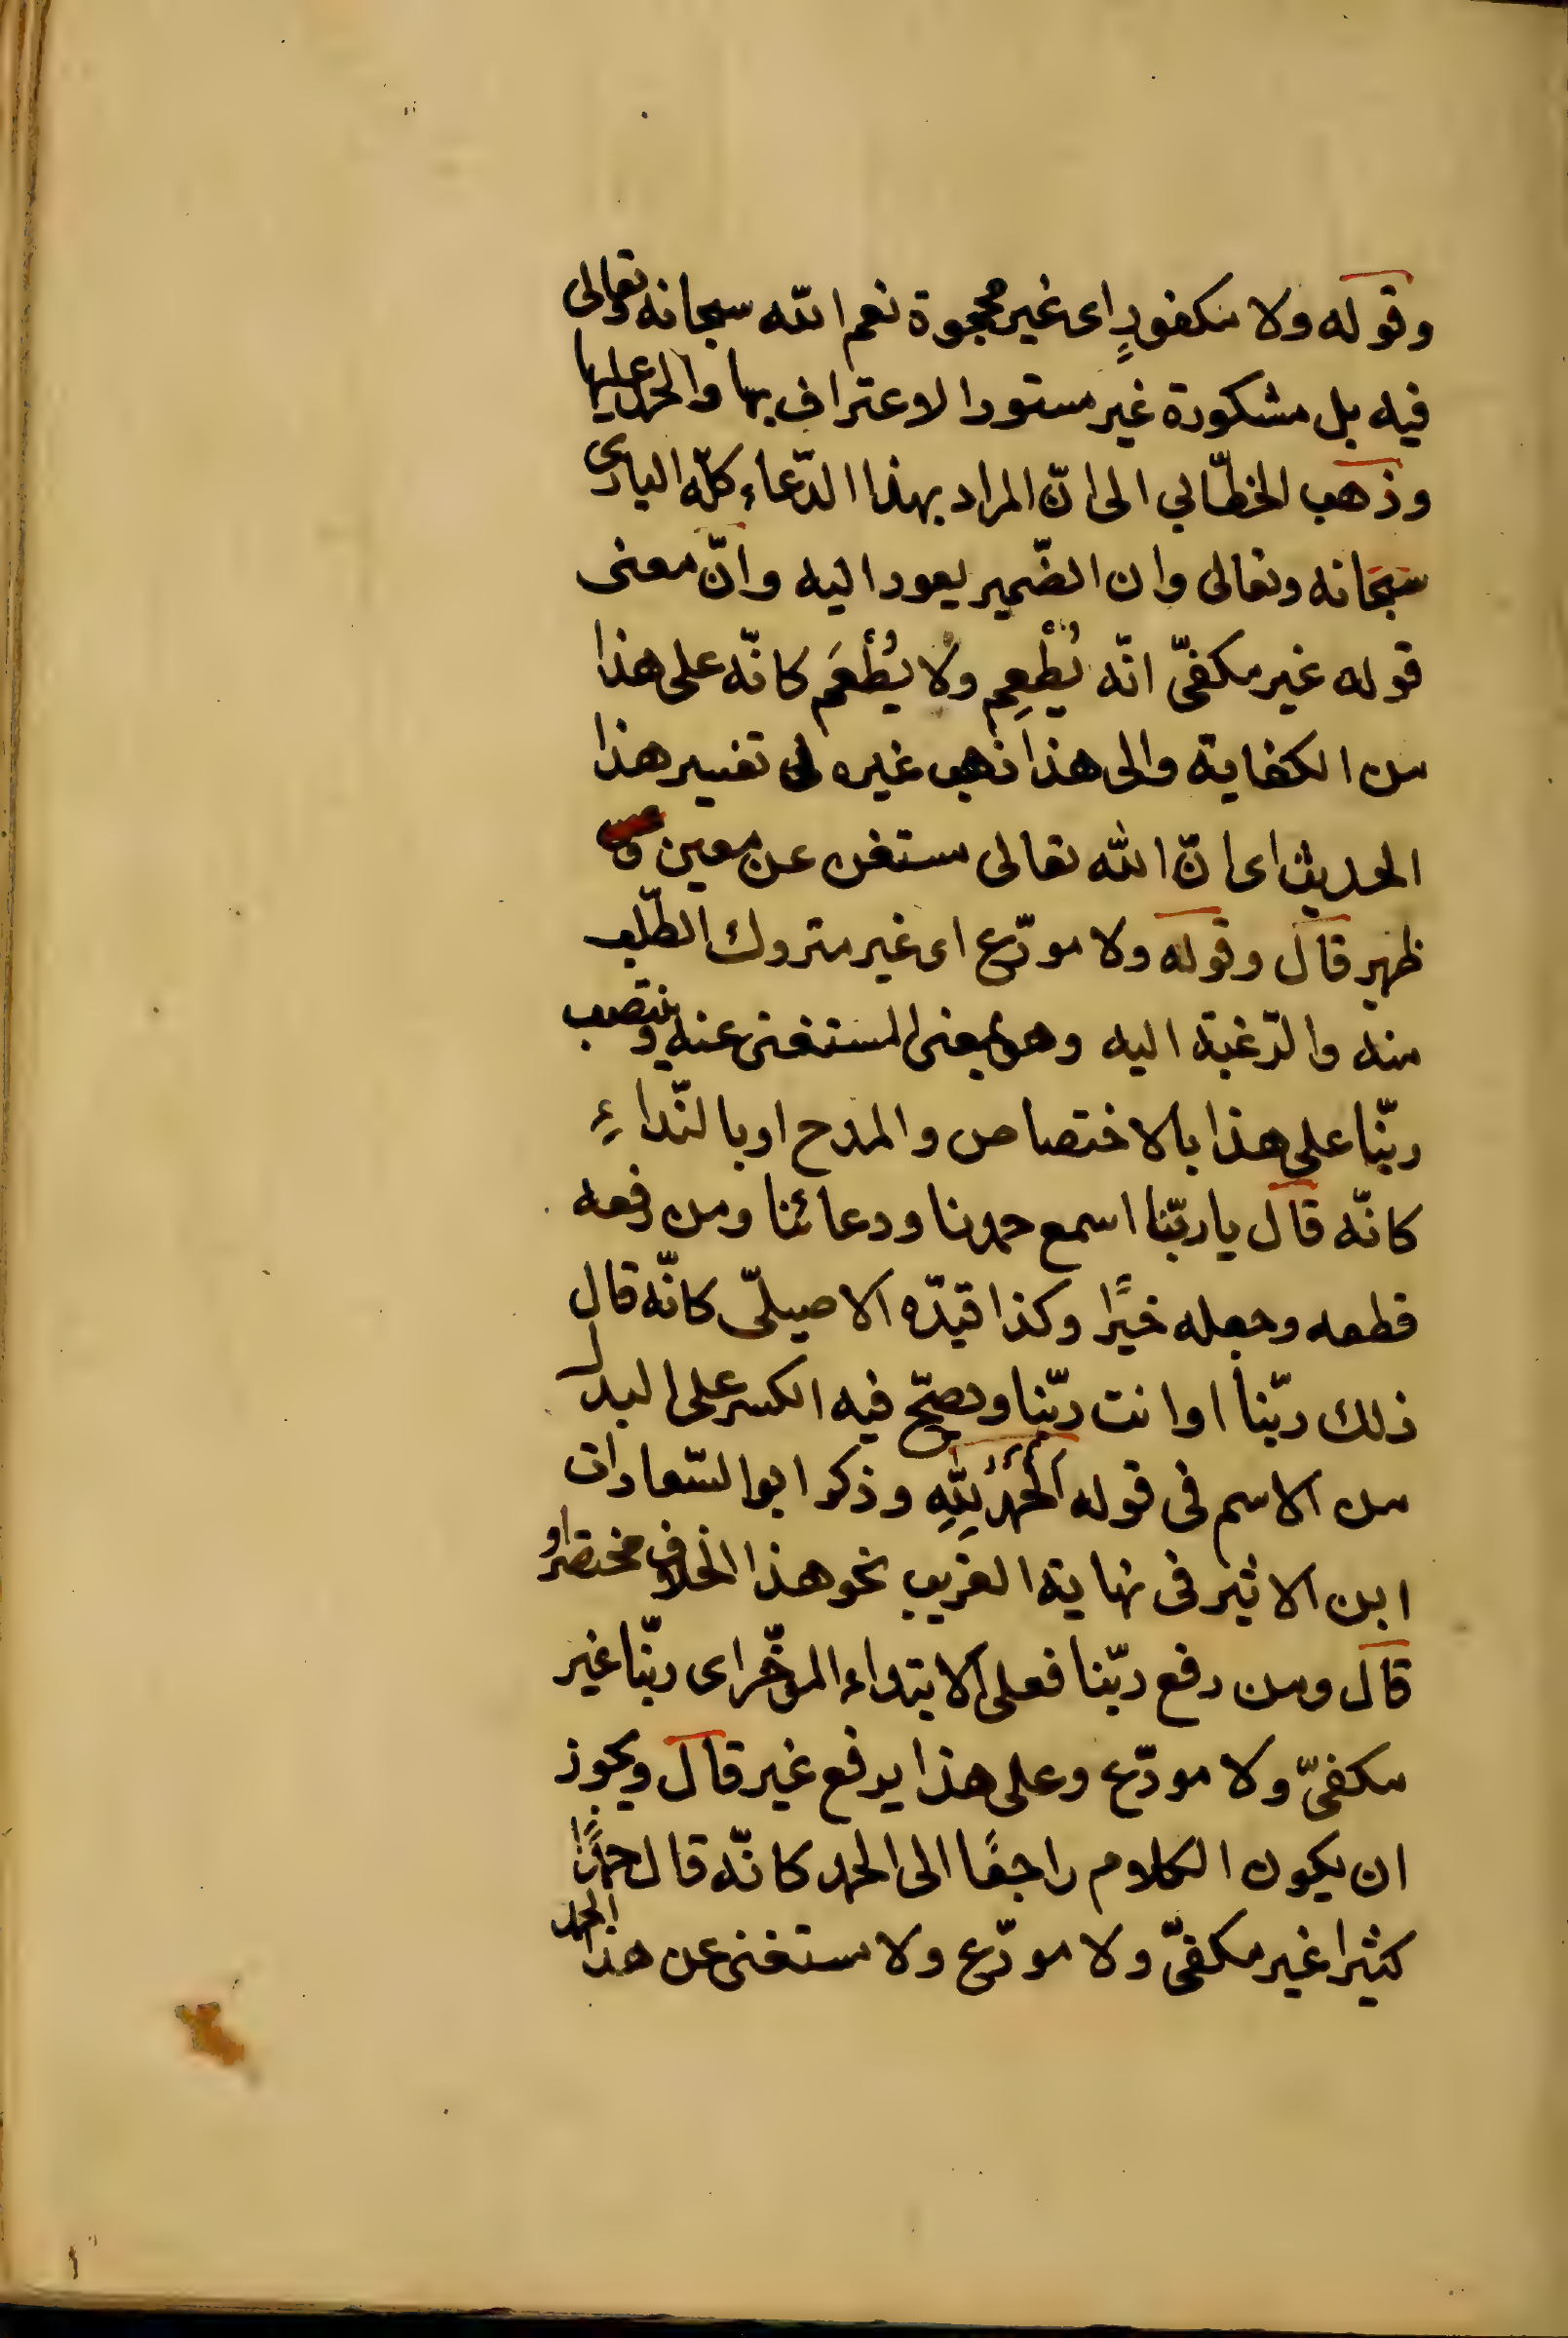 وقوله ولا مكفورٍ اى غير مججوة نعم الله سبحانه وتعالى
فيه بل مشكورة غير مستور الاعتراف بها والحمد عليها
وذهب الخطّابي الى انّ المراد بهذا الدّعاء كلّه البارى
سبحانه وتعالى وان الضّمير يعود اليه وانّ معنى
قوله غير مكفىّ انّه يُطْعِم ولا يُطْعَم كانّه على هذا
من الكفاية والى هذا ذهب غيره فى تفسير هذا
الحديث اى انّ الله تعالى مستغن عن معين و
ظهير قال وقوله ولا مودّع اى غير متروك الطّلب
منه والرّغبة اليه وهو بمعنى المستغنى عنه وينتصب
ربّنا على هذا بالاختصاص والمدح او بالنّداءِ
كانّه قال يا ربّنا اسمع حمدنا ودعائنا ومن رفعه
قطعه وجعله خبرًا وكذا قيّده الاصيلىّ كانّه قال
ذلك ربّنا او انت ربّنا ويصحّ فيه الكسر على البدل
من الاسم فى قوله اَلْحَمْدُ لِلّٰهِ وذكر ابو السّعادات
ابن الاثير فى نهاية الغريب نحو هذا الخلاف مختصرا و
قال ومن رفع ربّنا فعلى الابتداء المؤخّر اى ربّنا غير
مكفىّ ولا مودّع وعلى هذا يرفع غير قال ويجوز
ان يكون الكلام راجعًا الى الحمد كانّه قال حمدًا
كثيرا غير مكفىّ ولا مودّع ولا مستغنى عن هذا الحمد